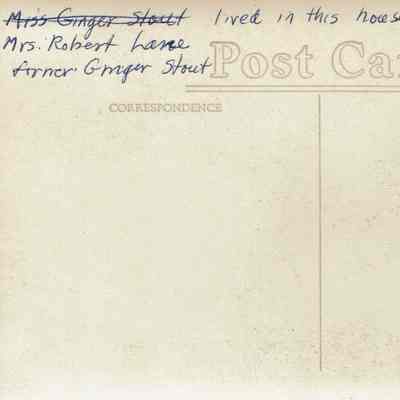 Miss Ginger Stout lived in this hous
Mrs. Robert Lane
former Ginger Stout
Post Ca
CORRESPONDENCE